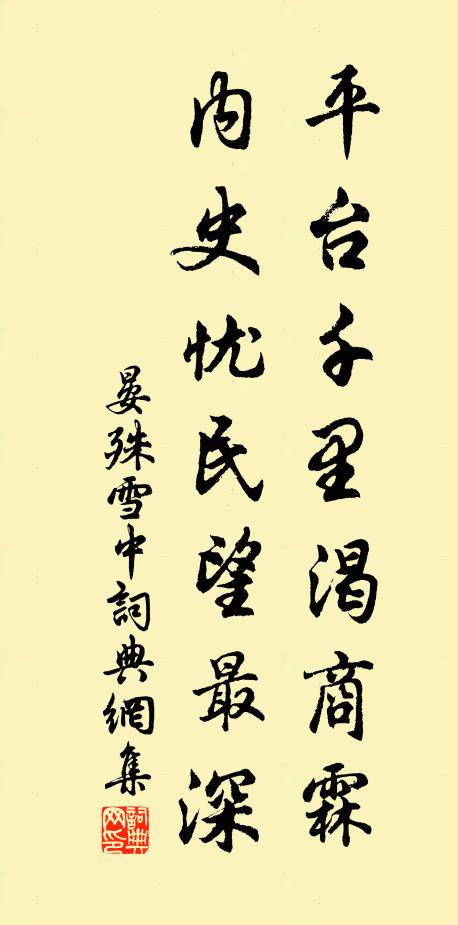 平台千里渴商霖
内史忧民望最深
晏殊雪中詞典網集
詞典网印